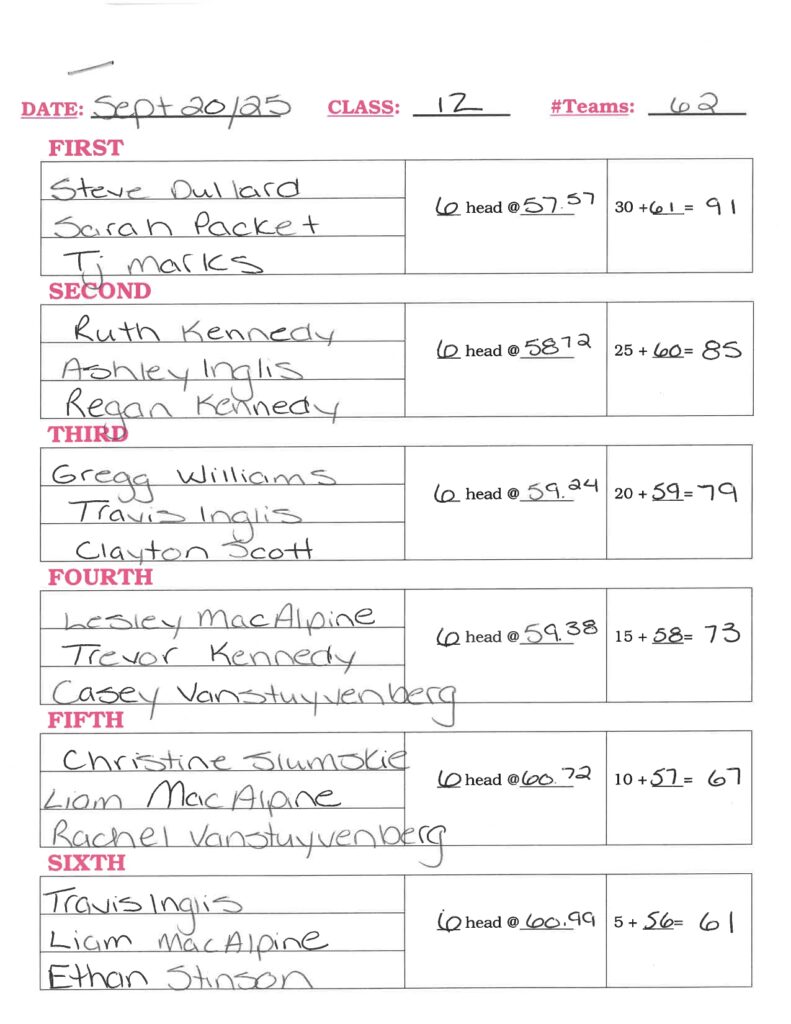 DATE: Sept 20/25 CLASS: 12 #Teams: 62
FIRST
Steve Dullard
Sarah Packet
Tj Marks
6 head @ 57.57
30 + 61 = 91
SECOND
Ruth Kennedy
Ashley Inglis
Regan Kennedy
6 head @ 58 72
25 + 60 = 85
THIRD
Gregg Williams
Travis Inglis
Clayton Scott
6 head @ 59.24
20 + 59 = 79
FOURTH
Lesley MacAlpine
Trevor Kennedy
Casey Vanstuyvenberg
6 head @ 59.38
15 + 58 = 73
FIFTH
Christine Slumskie
Liam MacAlpine
Rachel Vanstuyvenberg
6 head @ 60.72
10 + 57 = 67
SIXTH
Travis Inglis
Liam MacAlpine
Ethan Stinson
6 head @ 60.99
5 + 56 = 61